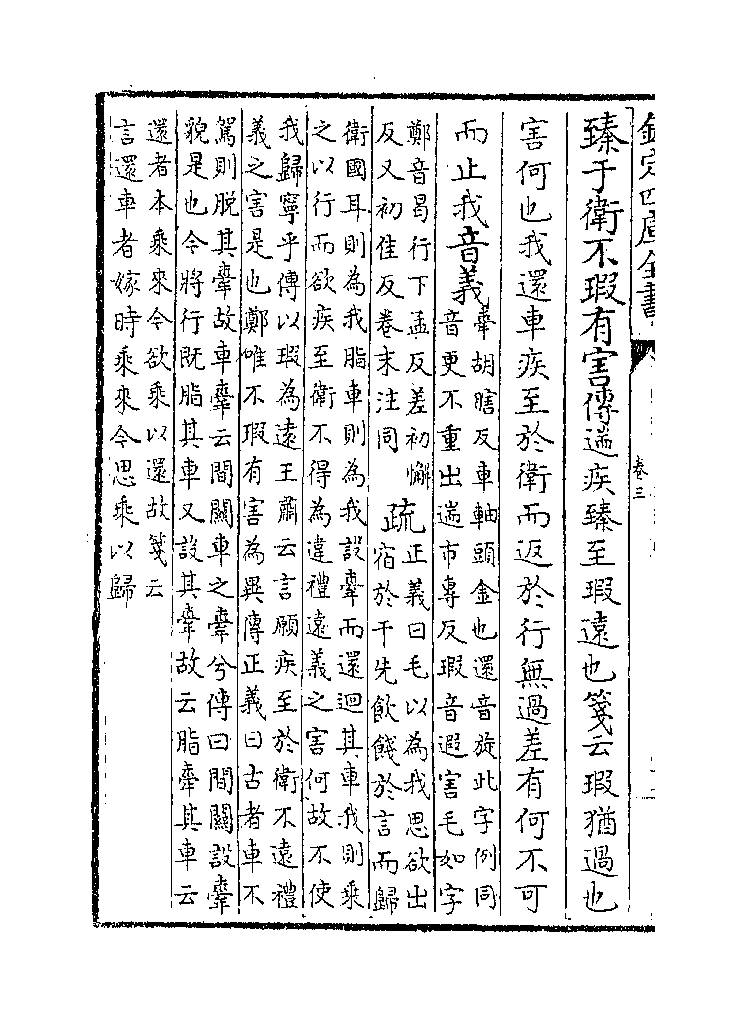 欽定四庫全書
卷三
臻于衛不瑕有害傳遄疾臻至瑕遠也箋云瑕猶過也
害何也我還車疾至於衛而返於行無過差有何不可
而止我音義舝胡瞎反車軸頭金也還音旋此字例同
音更不重出遄市專反瑕音遐害毛如字
鄭音曷行下孟反差初懈
反又初佳反卷末注同
疏正義曰毛以為我思欲出
宿於干先飲餞於言而歸
衛國耳則為我脂車則為我設舝而還迴其車我則乗
之以行而欲疾至衛不得為違禮遠義之害何故不使
我歸寧乎傳以瑕為逺王肅云言願疾至於衛不遠禮
義之害是也鄭唯不瑕有害為異傳正義曰古者車不
駕則脱其舝故車舝云間關車之舝兮傳曰間關設舝
貌是也今將行既脂其車又設其舝故云脂舝其車云
還者本乗來今欲乗以還故箋云
言還車者嫁時乗來今思乗以歸